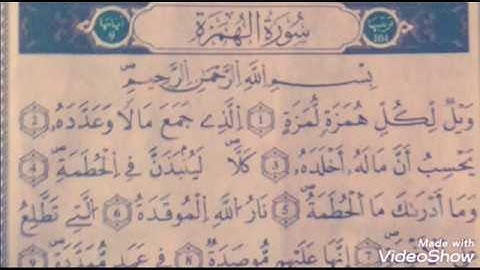 ترتيبها 104 سُورَةُ الْهُمَزَةِ آياتها 9
بِسْمِ اللَّهِ الرَّحْمَنِ الرَّحِيمِ
وَيْلٌ لِّكُلِّ هُمَزَةٍ لُّمَزَةٍ ١ الَّذِي جَمَعَ مَالًا وَعَدَّدَهُ ٢
يَحْسِبُ أَنَّ مَالَهُ أَخْلَدَهُ ٣ كَلَّا لَيُنبَذَنَّ فِي الْحُطَمَةِ ٤
وَمَا أَدْرَىٰكَ مَا الْحُطَمَةُ ٥ نَارُ اللَّهِ الْمُوقَدَةُ ٦ الَّتِي تَطَّلِعُ
٧ إِنَّهَا عَلَيْهِم مُّوصَدَةٌ ٨ فِي عَمَدٍ مُّمَدَّدَةٍ ٩
Made with
VideoShow